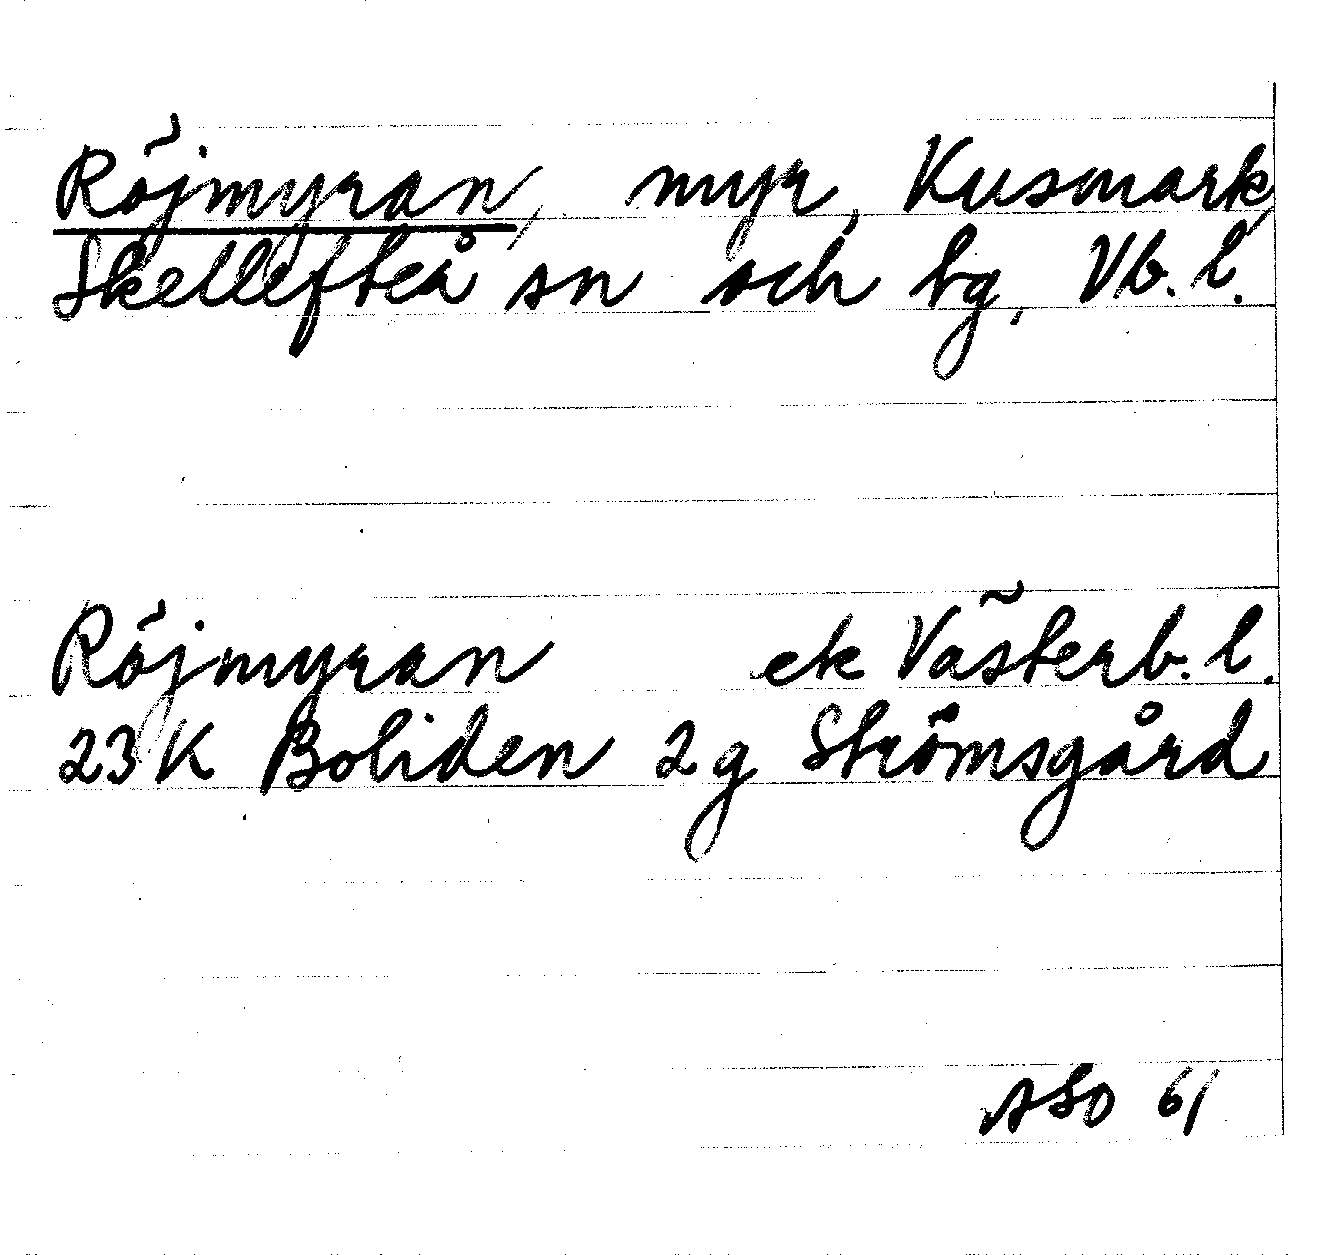 Röjmyran, myr, Kusmark,
Skellefteå sn och tg, Vb. l.
Röjmyran ek Västerb. l.
23 K Boliden 2 g Strömsgård
ASO 61